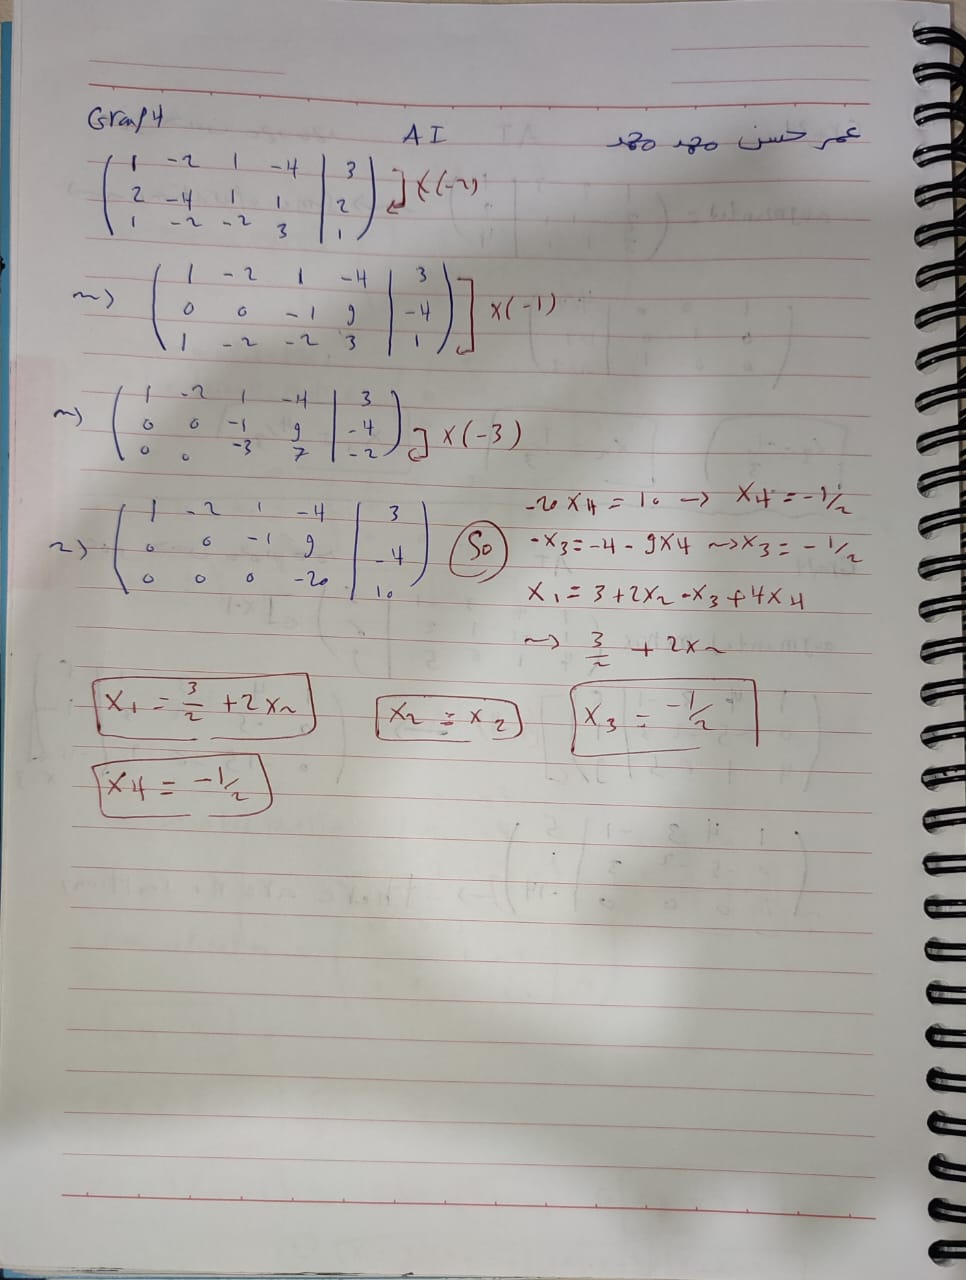 Group 4 AI عمر حسن محمد محمد
1 -2 1 -4 | 3
2 -4 1 1 | 2 ] x(-2)
1 -2 -2 3 | 1
~> 1 -2 1 -4 | 3
0 0 -1 9 | -4 ] x(-1)
1 -2 -2 3 | 1
~> 1 -2 1 -4 | 3
0 0 -1 9 | -4 ] x(-3)
0 0 -3 7 | -2
~> 1 -2 1 -4 | 3
0 0 -1 9 | -4
0 0 0 -20 | 10
So
-20 x4 = 10 -> x4 = -1/2
-x3 = -4 - 9x4 ~> x3 = -1/2
x1 = 3 + 2x2 - x3 + 4x4
~> 3/2 + 2x2
x1 = 3/2 + 2x2 x2 = x2 x3 = -1/2
x4 = -1/2